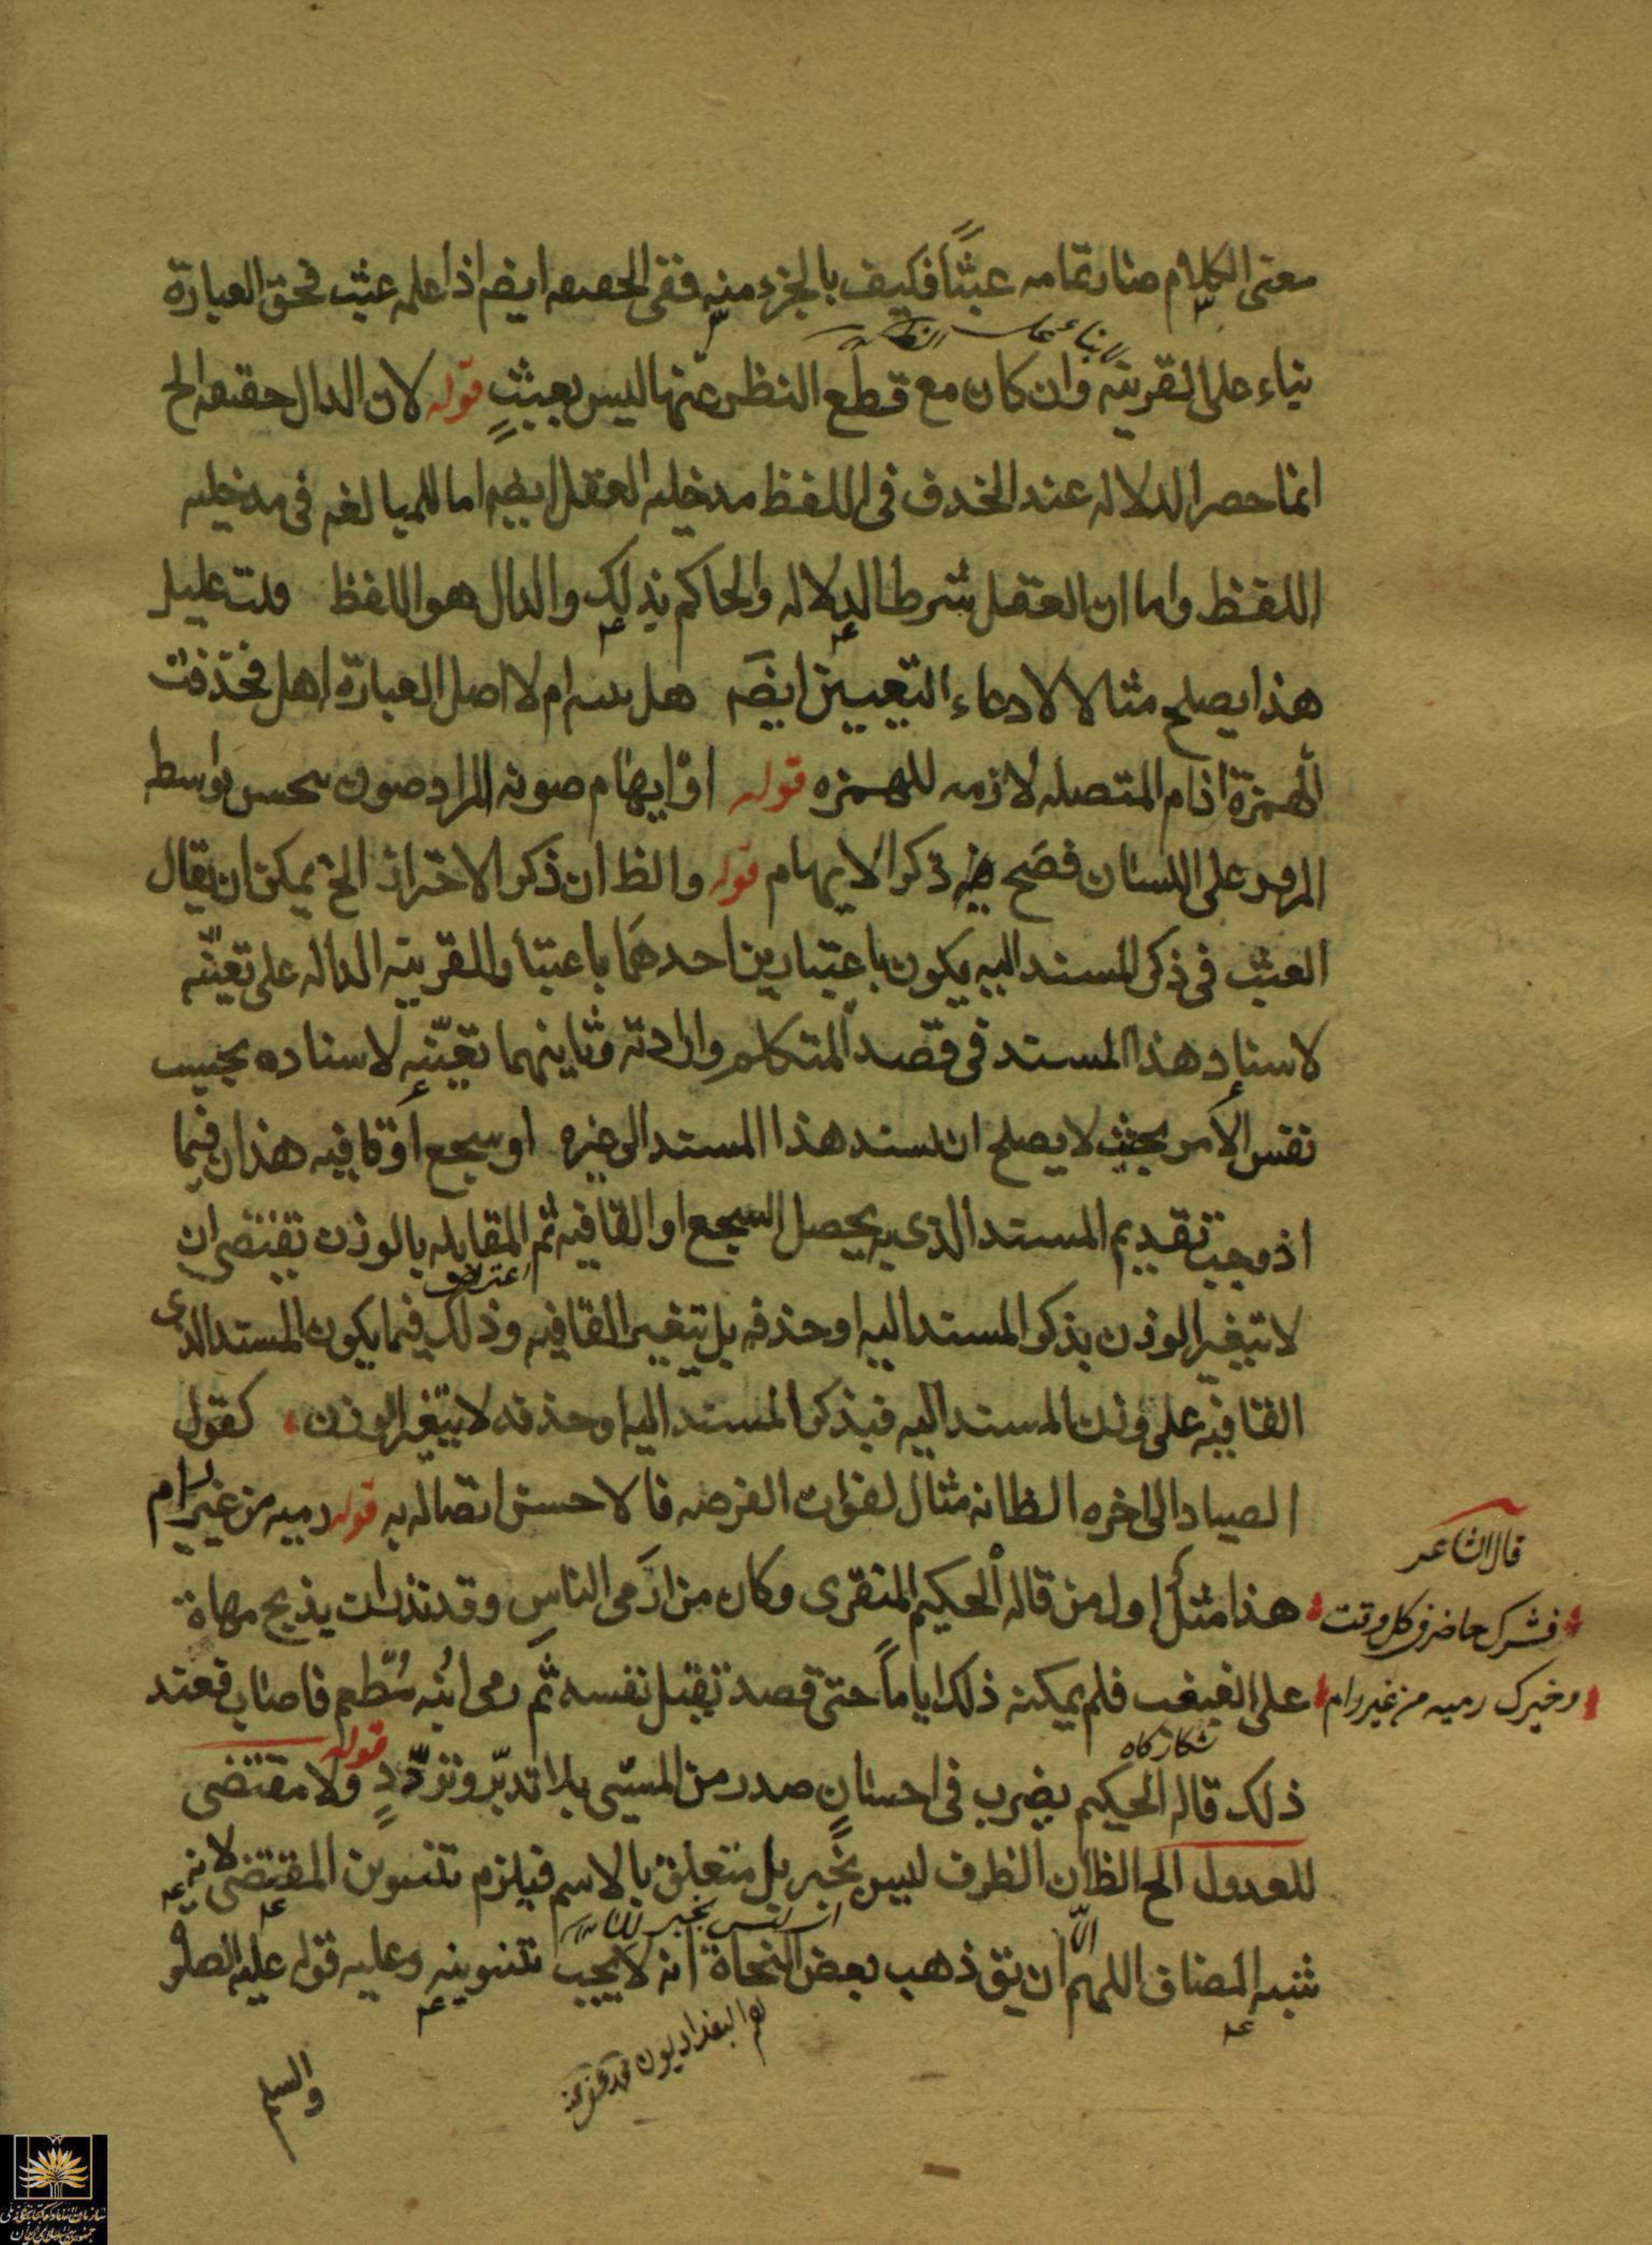 معنى الكلام صار تمامه عبثًا فكيف بالجزء منه ففى الحقيقه ايضا اذا علمه عبث فحق العبارة
بناء على الظ
بناء على القرينه وان كان مع قطع النظر عنها ليس بعبثٍ قوله لان الدال حقيقه الخ
انما حصر الدلاله عند الحذف فى اللفظ مدخليه العقل ايضا اما للمبالغه فى مدخليه
اللفظ واما ان العقل شرط الدلاله والحاكم بذلك والدال هو اللفظ قلت عليل
هذا يصلح مثالا لادعاء التعيين ايضا هل ام لا اصل العبارة اهل فحذفت
الهمزة اذ ام المتصله لازمه للهمزه قوله او ايهام صونه المراد صون بواسطه
على اللسان فصح ذكر الايهام قوله والظ ان ذكر الاحتراز الخ يمكن ان يقال
العبث فى ذكر المسند اليه يكون باعتبارين احدهما باعتبار القرينه الداله على تعيّنه
لاسناد هذا المسند فى قصد المتكلم وارادته وثانيهما تعيّنه لاسناده بحسب
نفس الأمر بحيث لا يصلح ان يسند هذا المسند الى غيره او سجع او قافيه هذان فيما
اذ وجب تقديم المسند الذى به يحصل السجع او القافيه ثم المقابله بالوزن تقتضى ان
اعتراض
لا تتغير الوزن بذكر المسند اليه او حذفه بل يتغير القافيه وذلك فيما يكون المسند الذى
القافيه على وزن المسند اليه فبذكر المسند اليه او حذفه لا يتغير الوزن، كقول
الصياد الى اخره الظ انه مثال لفوات الفرصه فالاحسن اتصاله به قوله رميه من غير رام
قال الشاعر
هذا مثل اول من قاله الحكيم المنقرى وكان من ارمى الناس وقد نذر ان يذبح مهاة
فشرك حاضر فى كل وقت
على الغبغب فلم يمكنه ذلك اياماً حتى قصد تقتل نفسه ثم رمى ابنه مُطعم فاصاب فعند
وخيرك رميه من غير رام
شكاركاه
ذلك قاله الحكيم يضرب فى احسانٍ صدر من المسئى بلا تدبّر وتردّدٍ قوله ولا مقتضى
للعدول الخ الظ ان الظرف ليس بخبر بل متعلق بالاسم فيلزم تنوين المقتضى لانه
ان ليس بخبر
شبه المضاف اللهم الّا ان يق ذهب بعض النحاة انه لا يجب تنوينه وعليه قوله عليه الصلو
هم البغداديون
والسلم